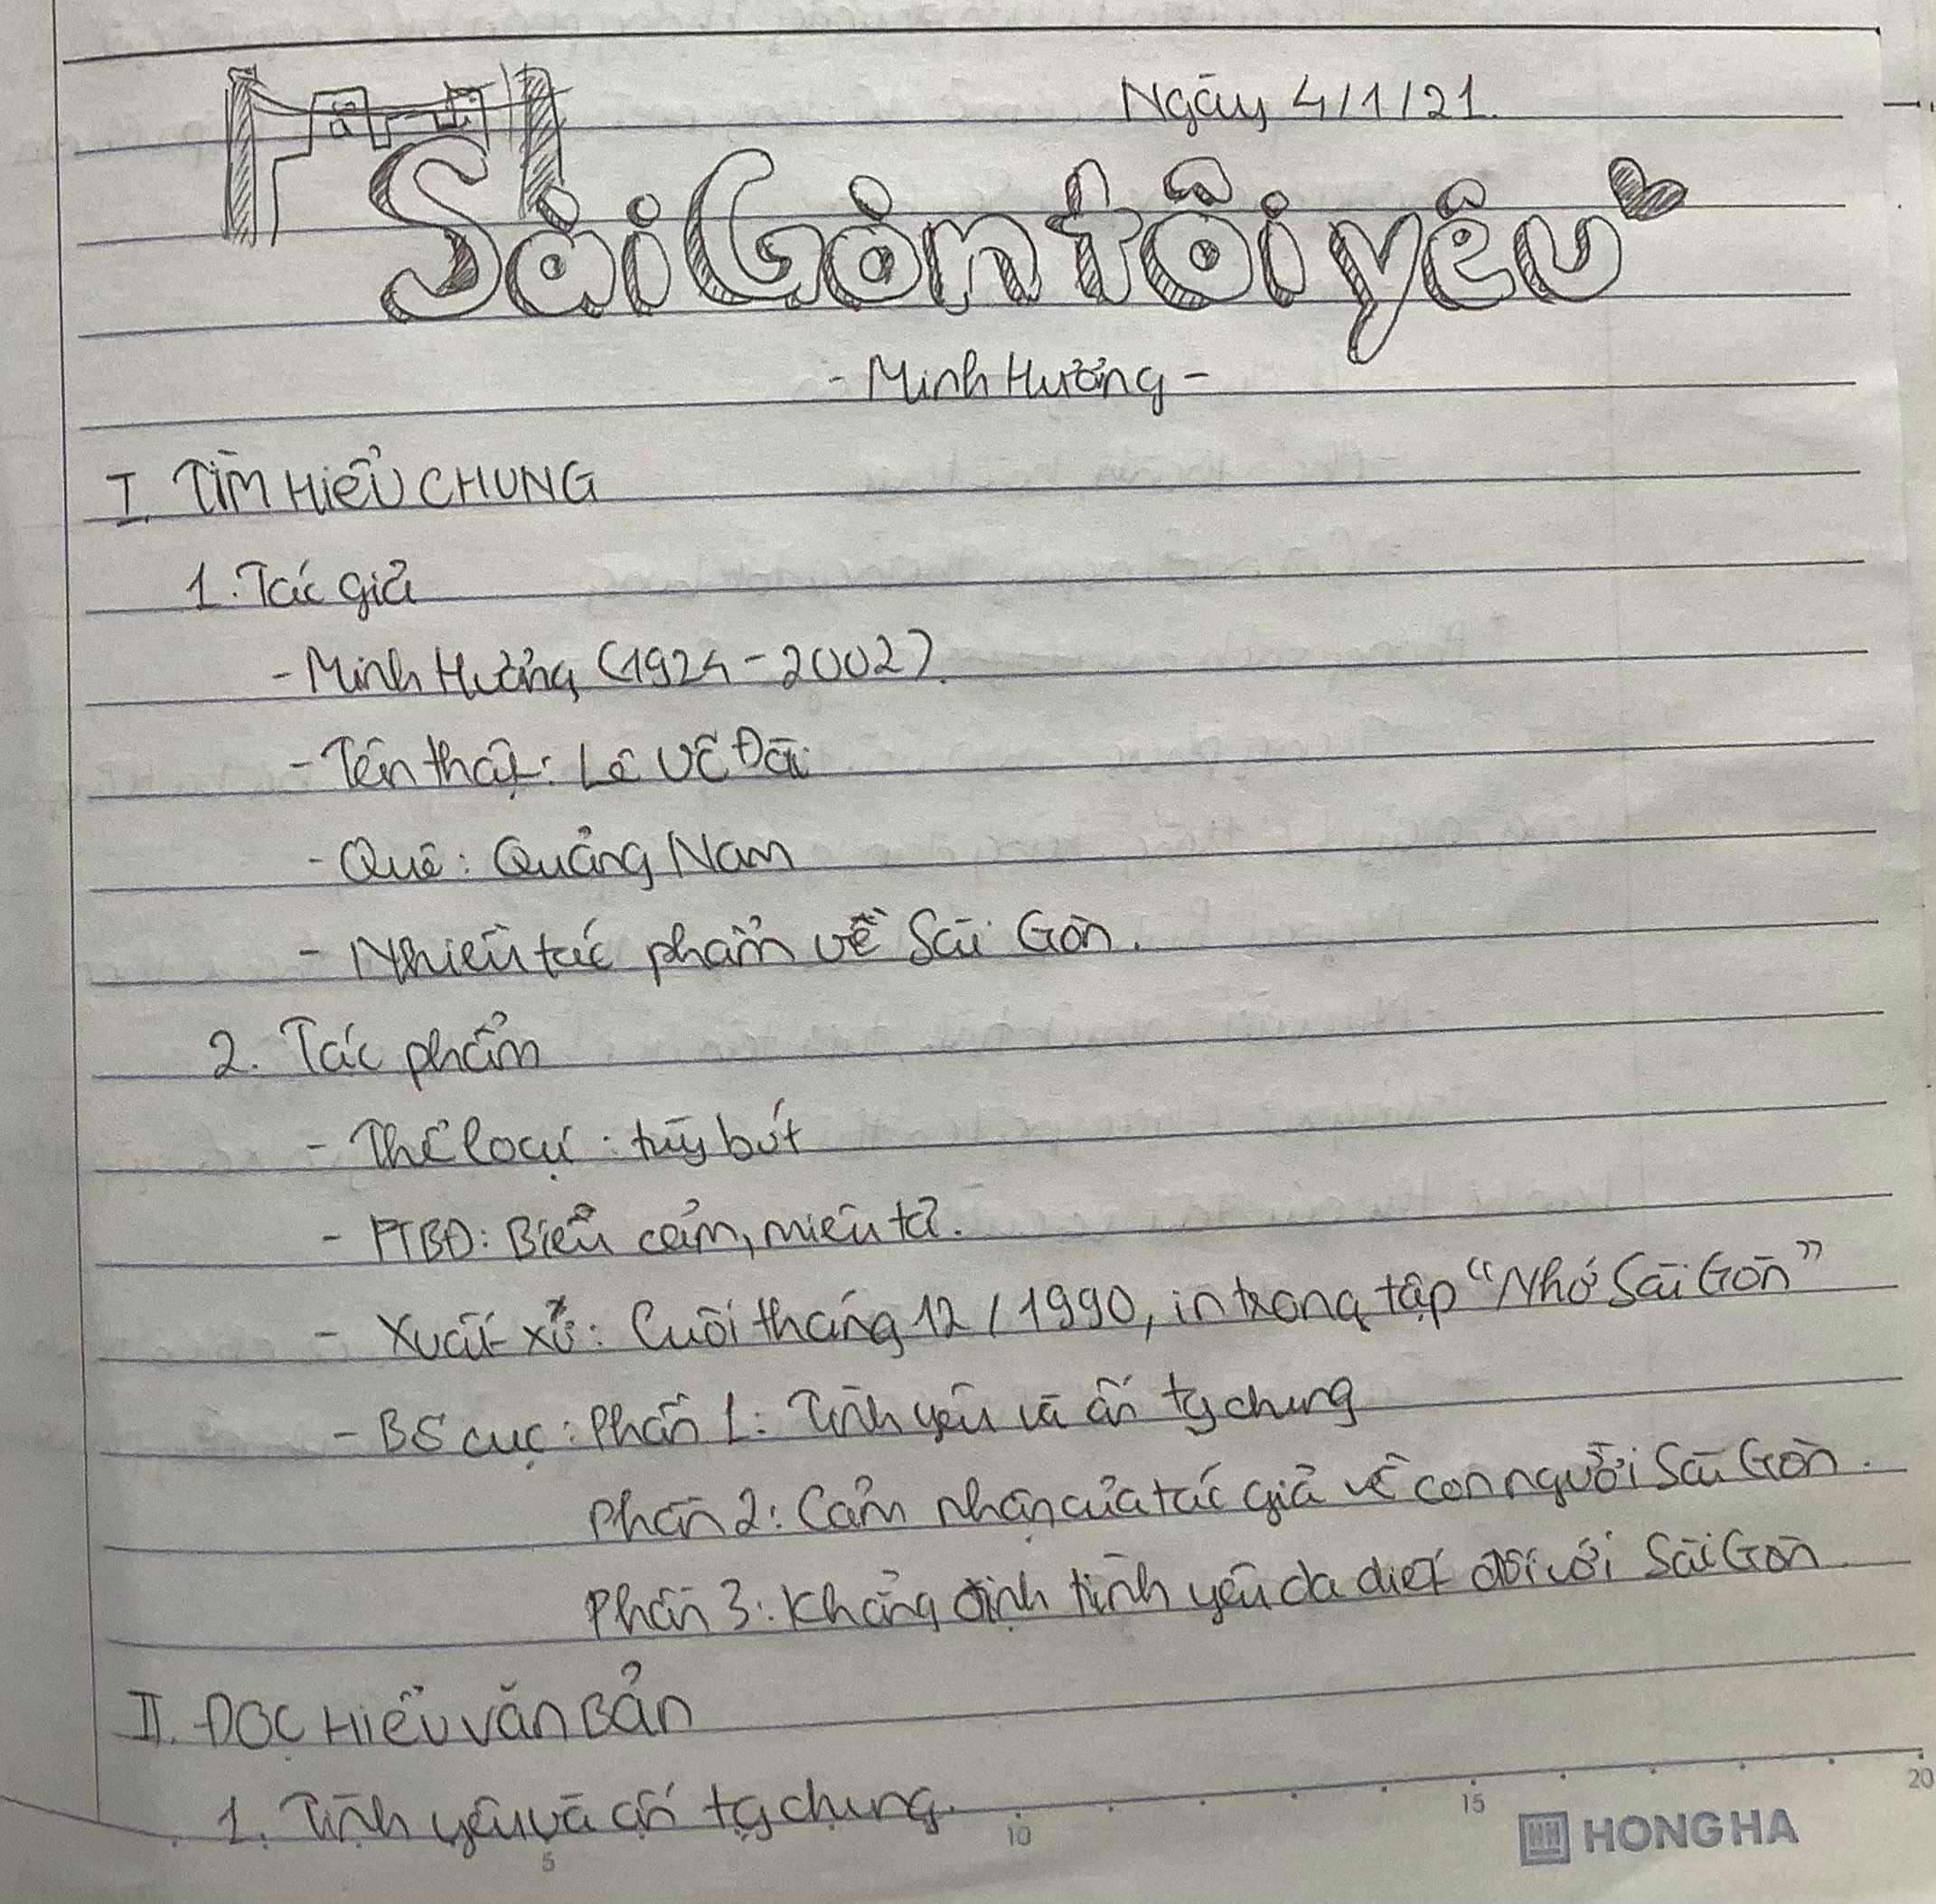 Ngày 4/1/21.
Sài Gòn tôi yêu
- Minh Hương -
I. TÌM HIỂU CHUNG
1. Tác giả
- Minh Hương (1924 - 2002).
- Tên thật: Lê Võ Đài
- Quê: Quảng Nam
- Nhiều tác phẩm về Sài Gòn.
2. Tác phẩm
- Thể loại: tùy bút
- PTBĐ: Biểu cảm, miêu tả.
- Xuất xứ: Cuối tháng 12/1990, in trong tập "Nhớ Sài Gòn"
- Bố cục: Phần 1: Tình yêu và ấn tg chung
Phần 2: Cảm nhận của tác giả về con người Sài Gòn.
Phần 3: Khẳng định tình yêu da diết đối với Sài Gòn
II. ĐỌC HIỂU VĂN BẢN
1. Tình yêu và ấn tg chung.
5 10 15 20
HONG HA